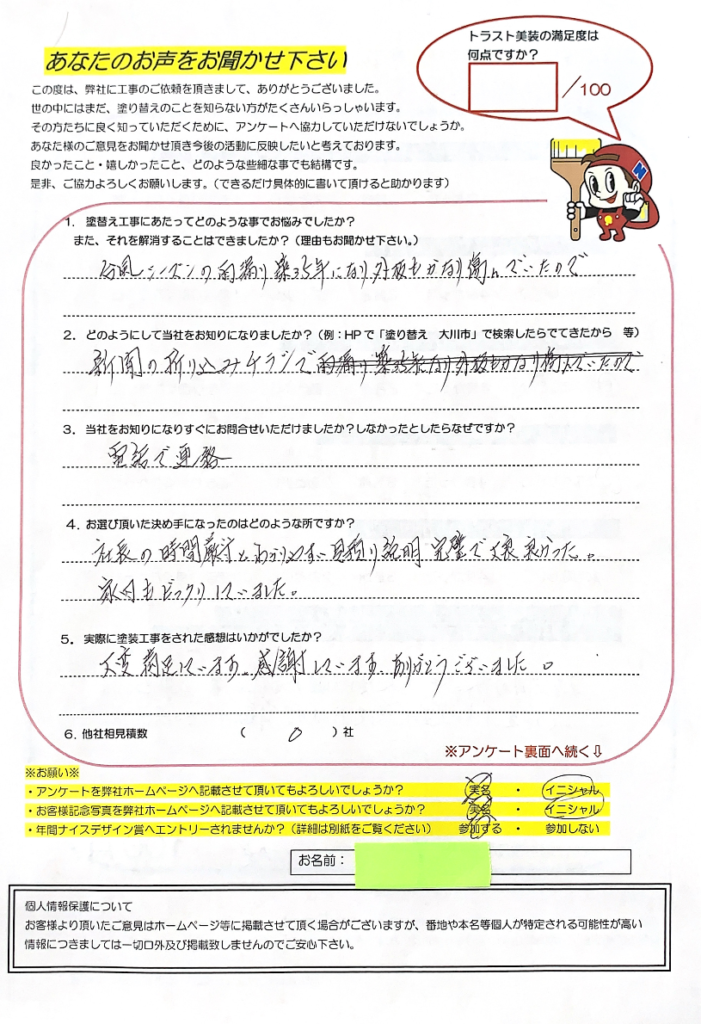 あなたのお声をお聞かせ下さい
トラスト美装の満足度は
何点ですか？
/100
この度は、弊社に工事のご依頼を頂きまして、ありがとうございました。
世の中にはまだ、塗り替えのことを知らない方がたくさんいらっしゃいます。
その方たちに良く知っていただくために、アンケートへ協力していただけないでしょうか。
あなた様のご意見をお聞かせ頂き今後の活動に反映したいと考えております。
良かったこと・嬉しかったこと、どのような些細な事でも結構です。
是非、ご協力よろしくお願いします。（できるだけ具体的に書いて頂けると助かります）
N
1．塗替え工事にあたってどのような事でお悩みでしたか？
また、それを解消することはできましたか？（理由もお聞かせ下さい。）
台風シーズンの雨漏り築35年になり外板もかなり傷んでいたので
2．どのようにして当社をお知りになりましたか？（例：HPで「塗り替え　大川市」で検索したらでてきたから　等）
新聞の折り込みチラシで
3．当社をお知りになりすぐにお問合せいただけましたか？しなかったとしたらなぜですか？
電話で連絡
4．お選び頂いた決め手になったのはどのような所ですか？
社長の時間厳守と 見積り説明 完璧で大変良かった。
家内もビックリしていました。
5．実際に塗装工事をされた感想はいかがでしたか？
大変満足しています。感謝しています。ありがとうございました。
6．他社相見積数　（　0　）社
※アンケート裏面へ続く⇩
※お願い※
・アンケートを弊社ホームページへ記載させて頂いてもよろしいでしょうか？　実名　・　イニシャル
・お客様記念写真を弊社ホームページへ記載させて頂いてもよろしいでしょうか？　実名　・　イニシャル
・年間ナイスデザイン賞へエントリーされませんか？（詳細は別紙をご覧ください）　参加する　・　参加しない
お名前：
個人情報保護について
お客様より頂いたご意見はホームページ等に掲載させて頂く場合がございますが、番地や本名等個人が特定される可能性が高い
情報につきましては一切口外及び掲載致しませんのでご安心下さい。